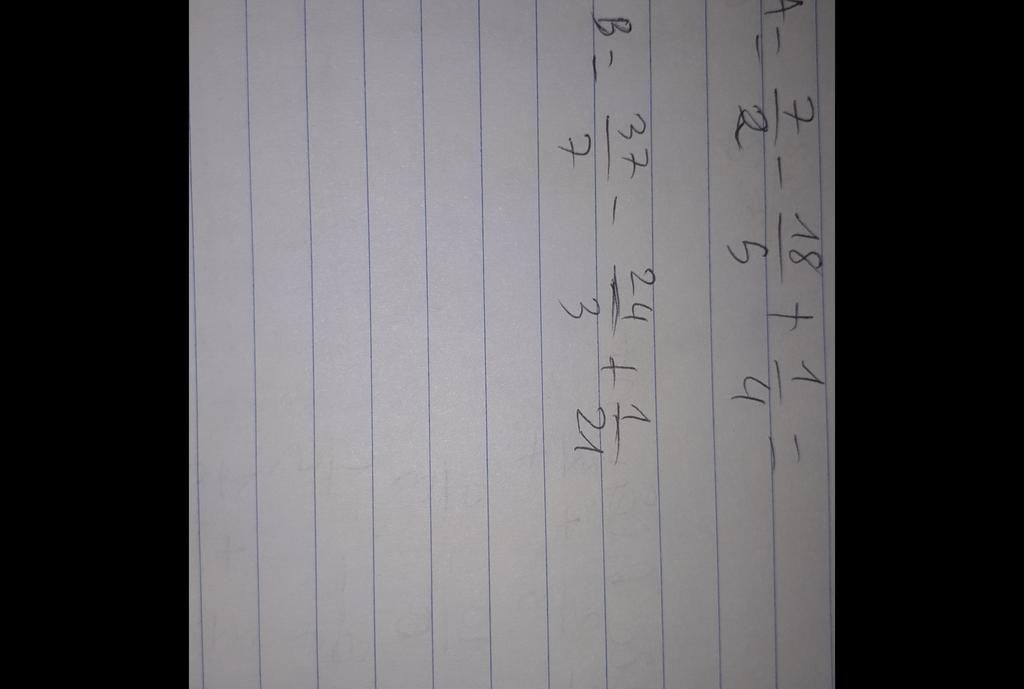 A = 7/2 - 18/5 + 1/4 =
B = 37/7 - 24/3 + 1/21